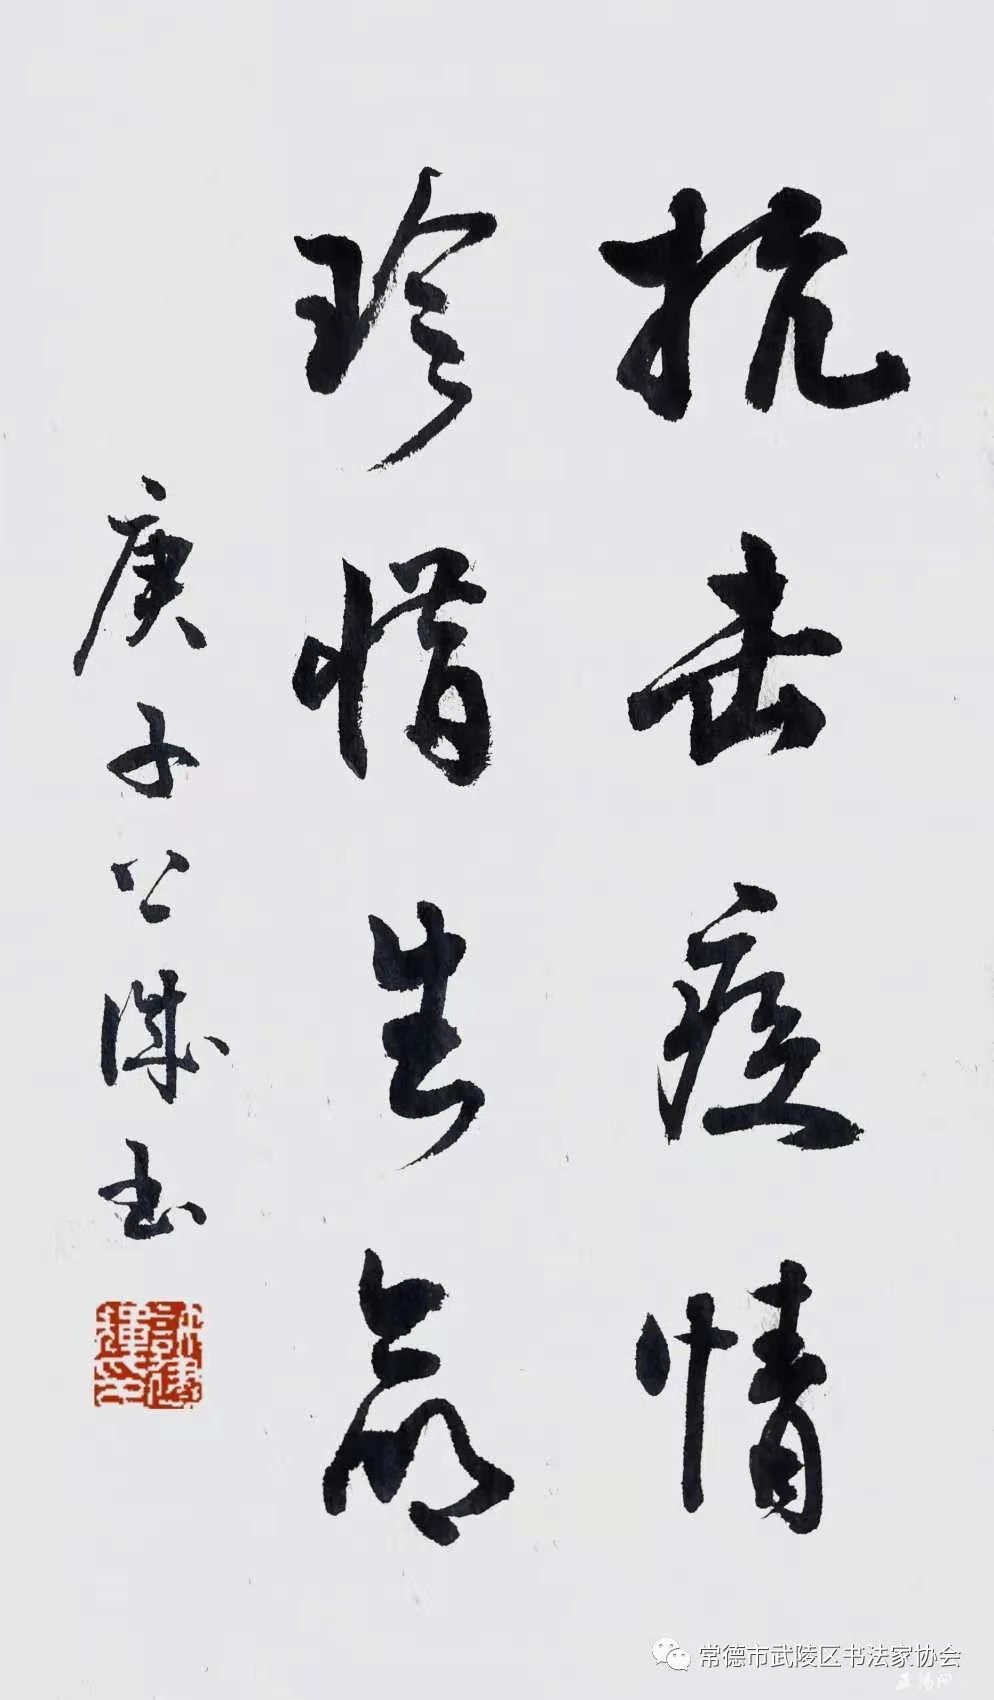 抗击疫情
珍惜生命
庚子公诚书
常德市武陵区书法家协会